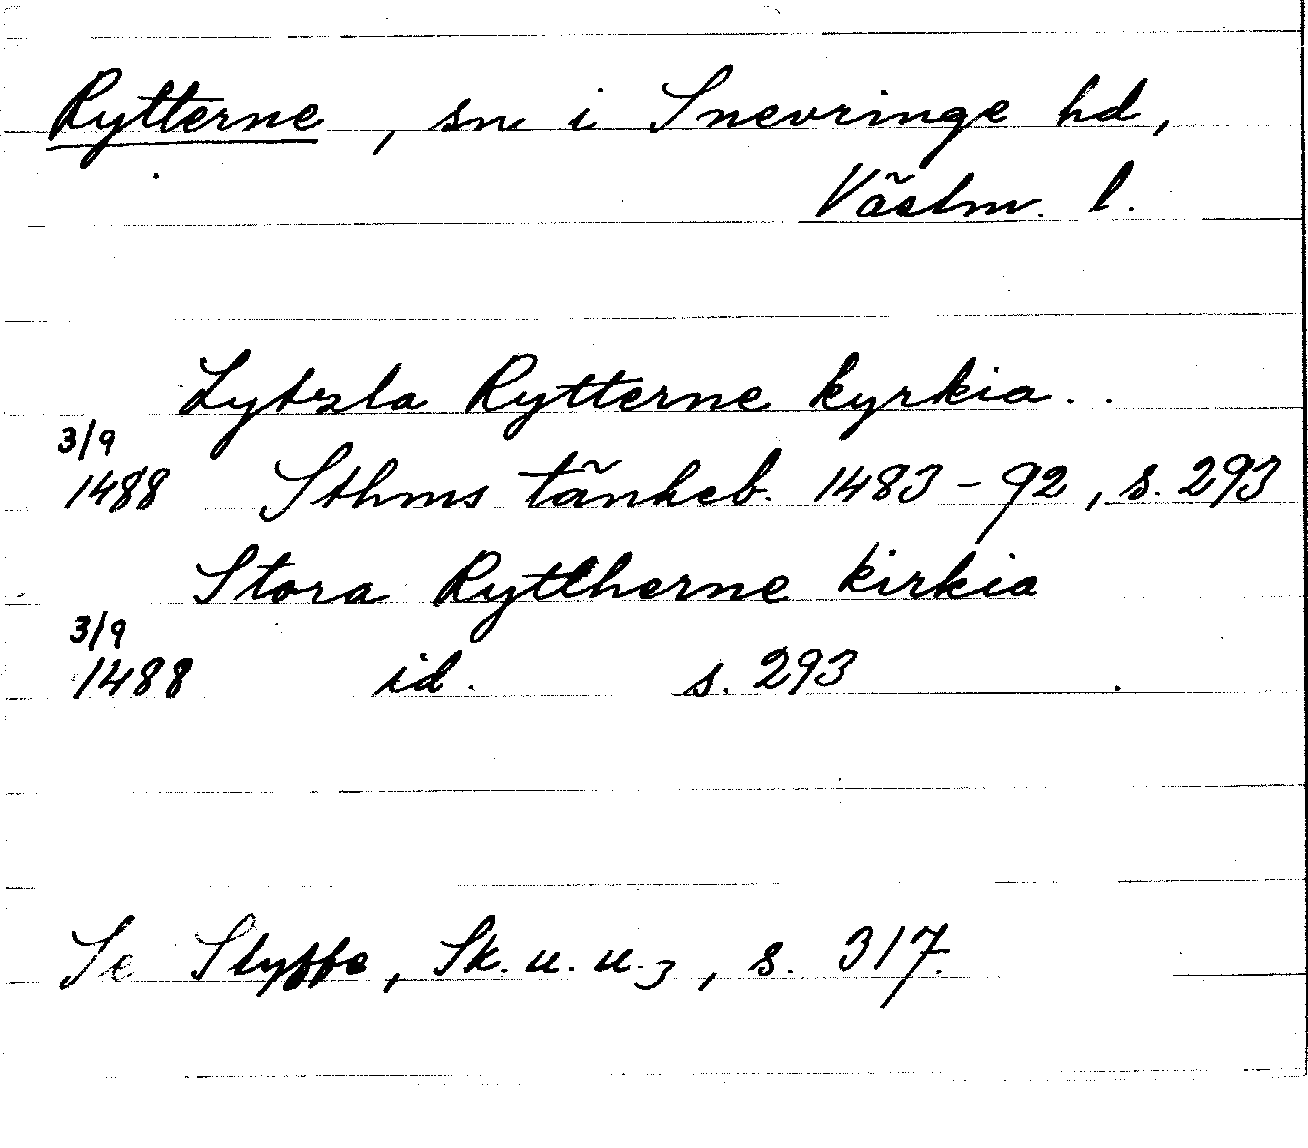 Rytterne, sn i Snevringe hd,
Västm. l.
Lytzla Rytterne kyrkia..
3/9
1488 Sthms tänkeb. 1483-92, s. 293
Stora Ryttherne kirkia
3/9
1488 id. s. 293
Se Styffe, Sk. u. u.3, s. 317.